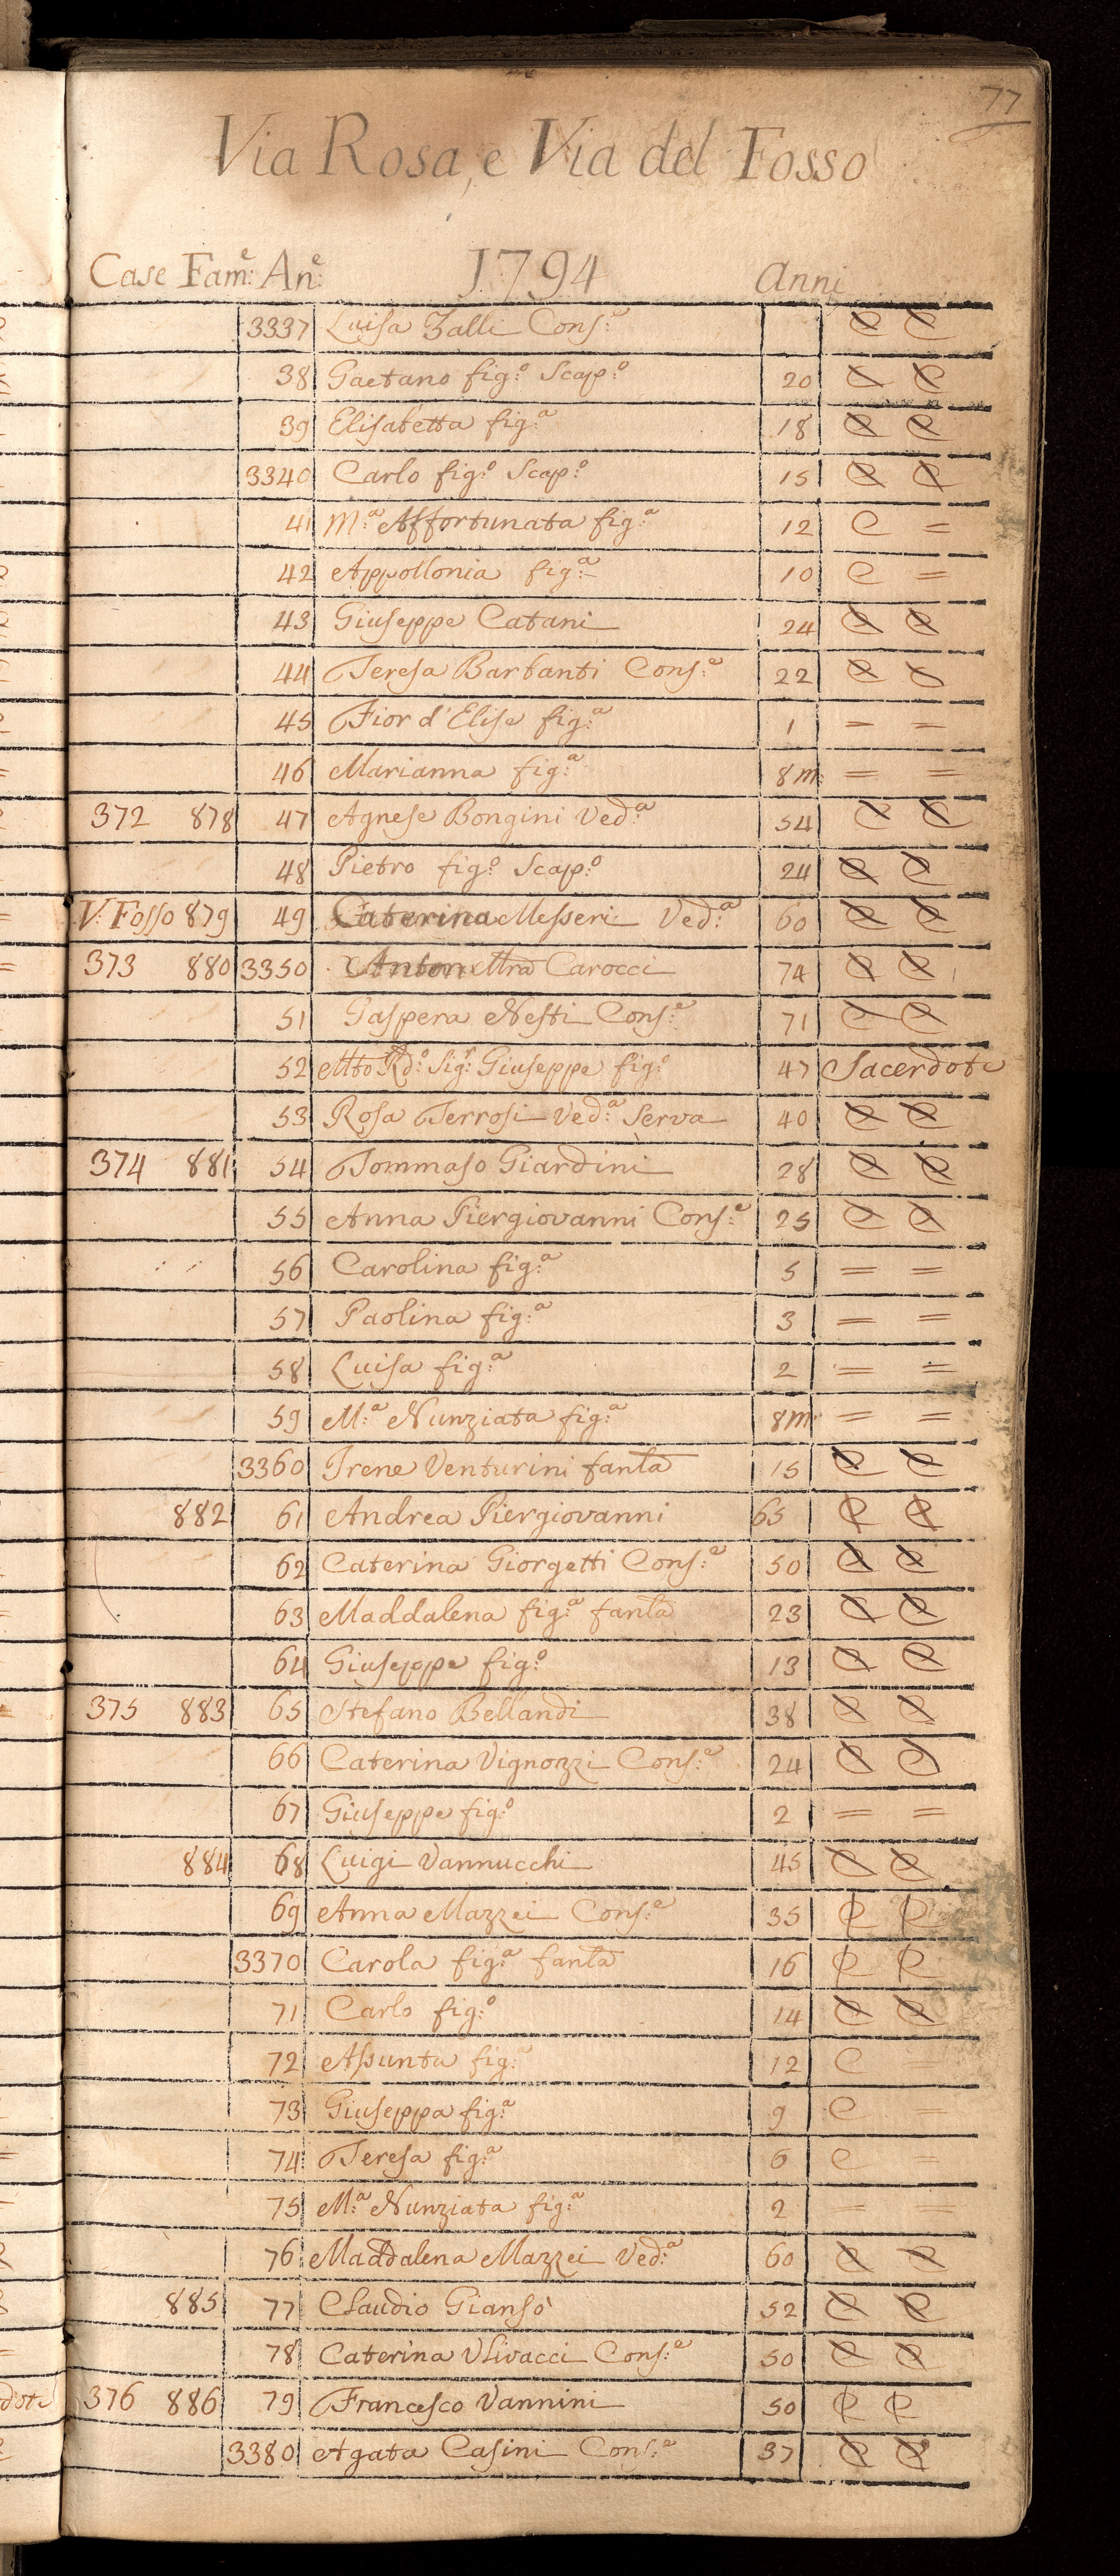 77
Via Rosa, e Via del Fosso
Case Fam.e: An.e: 1794 Anni
3337 Luisa Zalli Cons.e C C
38 Gaetano fig.o Scap.o 20 C C
39 Elisabetta fig.a 18 C C
3340 Carlo fig.o Scap.o 15 C C
41 M.a Affortunata fig.a 12 C =
42 Appollonia fig.a 10 C =
43 Giuseppe Catani 24 C C
44 Teresa Barbanti Cons.e 22 C C
45 Fior d'Elise fig.a 1 = =
46 Marianna fig.a 8 m: = =
372 878 47 Agnese Bongini Ved.a 54 C C
48 Pietro fig.o Scap.o 24 C C
V: Fosso 879 49 Caterina Messeri Ved.a 60 C C
373 880 3350 Carocci 74 C C
51 Gaspera Nesti Cons.e 71 C C
52 Mto Rd.o Sig.r Giuseppe fig.o 47 Sacerdote
53 Rosa Terrosi Ved.a Serva 40 C C
374 881 54 Tommaso Giardini 28 C C
55 Anna Piergiovanni Cons.e 25 C C
56 Carolina fig.a 5 = =
57 Paolina fig.a 3 = =
58 Luisa fig.a 2 = =
59 M.a Nunziata fig.a 8 m: = =
3360 Irene Venturini fanla 15 C C
882 61 Andrea Piergiovanni 65 C C
62 Caterina Giorgetti Cons.e 50 C C
63 Maddalena fig.a fanla 23 C C
64 Giuseppe fig.o 13 C C
375 883 65 Stefano Bellandi 38 C C
66 Caterina Vignozzi Cons.e 24 C C
67 Giuseppe fig.o 2 = =
884 68 Luigi Vannucchi 45 C C
69 Anna Mazzei Cons.e 35 C C
3370 Carola fig.a fanla 16 C C
71 Carlo fig.o 14 C C
72 Assunta fig.a 12 C
73 Giuseppa fig.a 9 C =
74 Teresa fig.a 6 C =
75 M.a Nunziata fig.a 2 = =
76 Maddalena Mazzei Ved.a 60 C C
885 77 Claudio Giansò 52 C C
78 Caterina Ulivacci Cons.e 50 C C
376 886 79 Francesco Vannini 50 C C
3380 Agata Casini Cons.e 37 C C